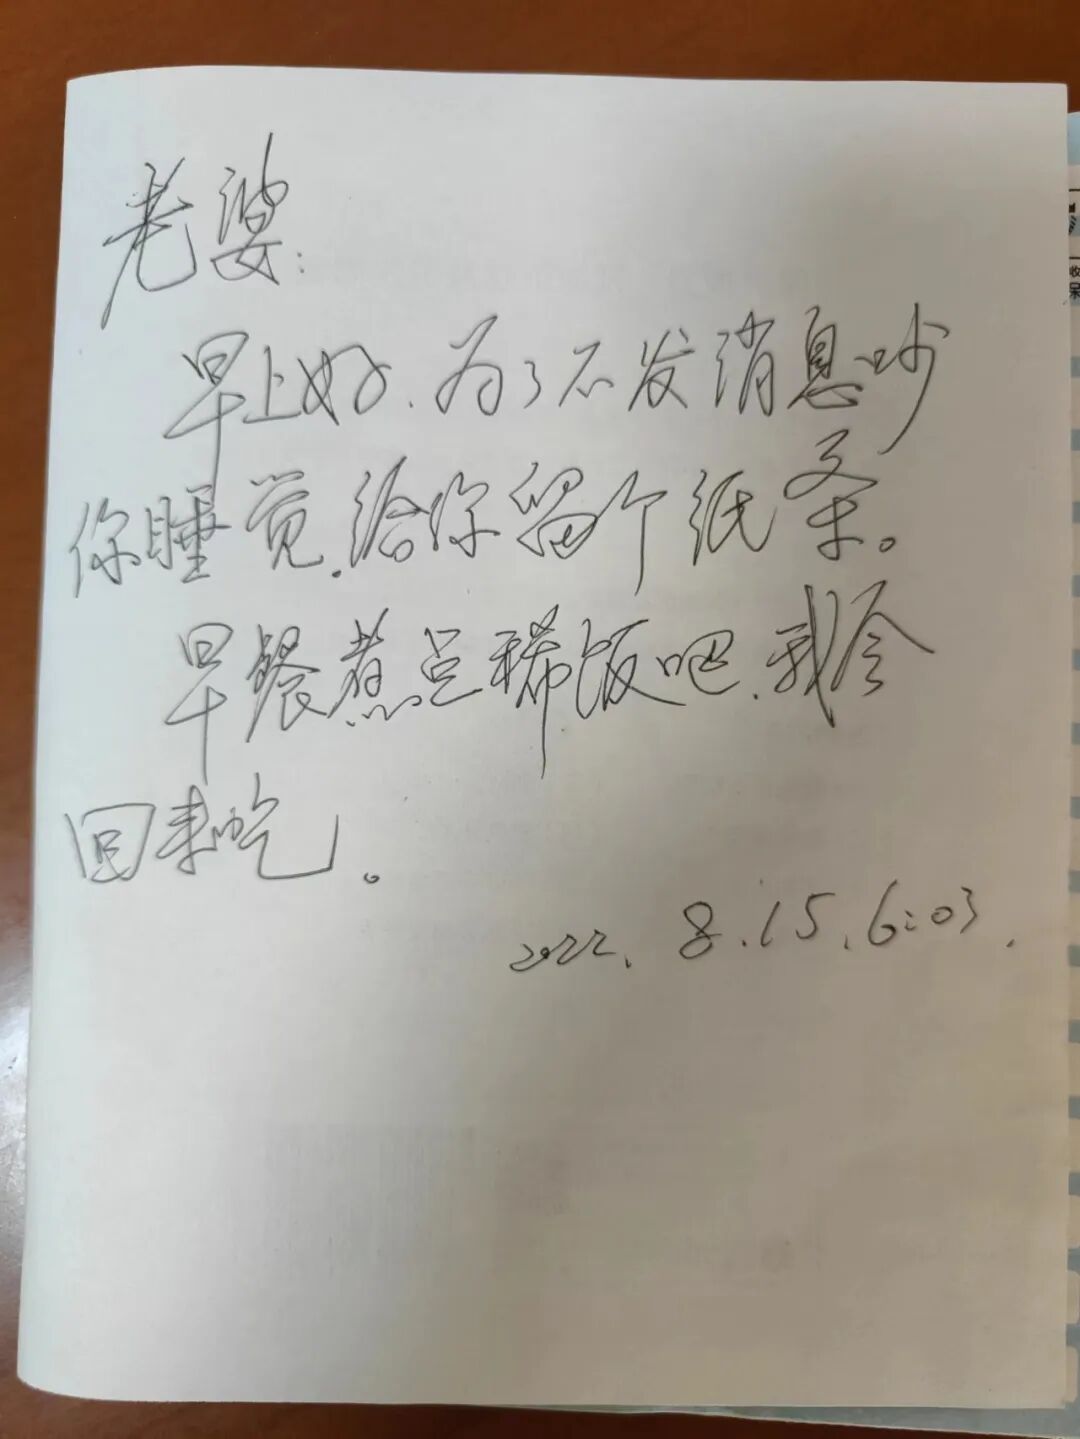 老婆:
早上好、为了不发消息吵
你睡觉.给你留个纸条。
早餐煮点稀饭吧.我会
回来吃。
2022. 8.15.6:03.